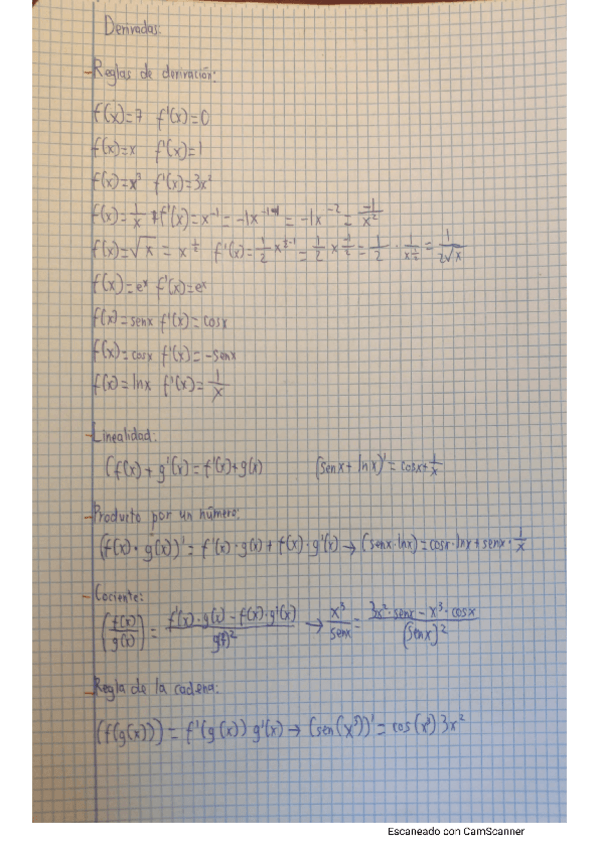 Derivadas:
- Reglas de derivación:
f(x)=7 f'(x)=0
f(x)=x f'(x)=1
f(x)=x³ f'(x)=3x²
f(x)=1/x f'(x)=x⁻¹=-1x⁻¹⁻¹=-1x⁻²=-1/x²
f(x)=√x=x^(1/2) f'(x)=1/2 x^(1/2-1)=1/2 x^(-1/2)=1/2 · 1/x^(1/2)=1/(2√x)
f(x)=eˣ f'(x)=eˣ
f(x)=senx f'(x)=cosx
f(x)=cosx f'(x)=-senx
f(x)=lnx f'(x)=1/x
- Linealidad:
(f(x)+g'(x)=f'(x)+g(x) (senx+lnx)'=cosx+1/x
- Producto por un número:
(f(x)·g(x))'=f'(x)·g(x)+f(x)·g'(x)→(senx·lnx)=cosx·lnx+senx·1/x
- Cociente:
(f(x)/g(x))=(f'(x)·g(x)-f(x)·g'(x))/g(x)²→x³/senx=(3x²·senx-x³·cosx)/(senx)²
- Regla de la cadena:
(f(g(x)))=f'(g(x)) g'(x)→(sen(x³))'=cos(x³) 3x²
Escaneado con CamScanner